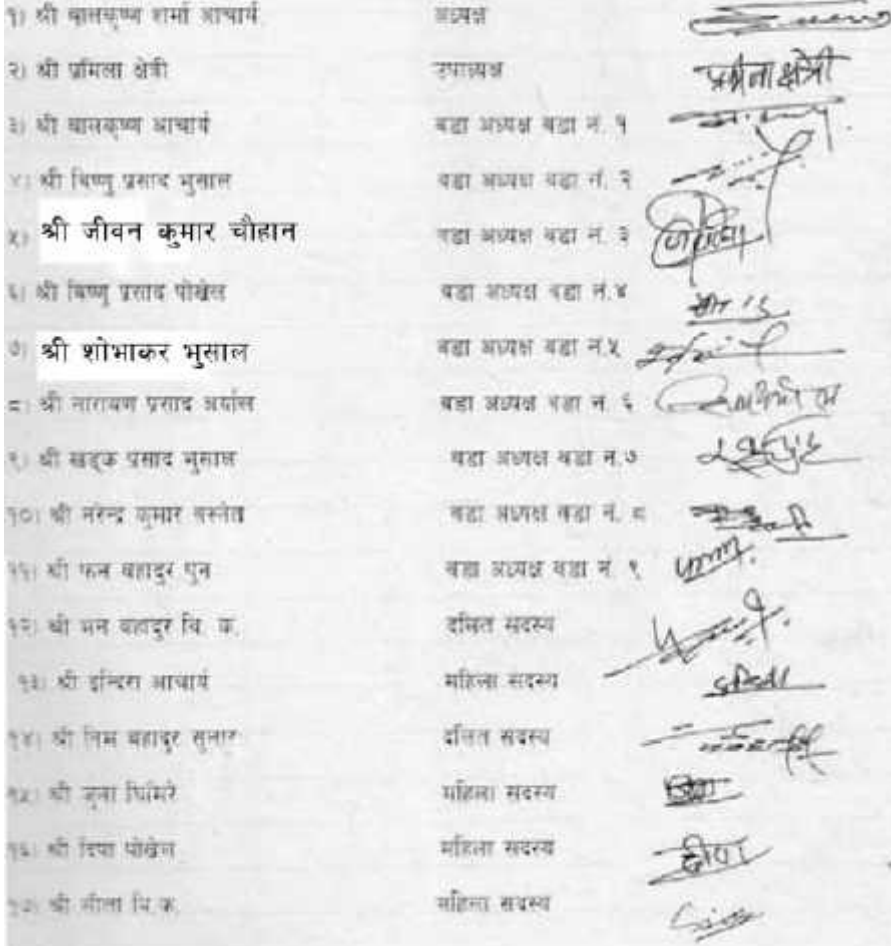 १) श्री बालकृष्ण शर्मा आचार्य अध्यक्ष
२) श्री प्रमिला क्षेत्री उपाध्यक्ष प्रमिला क्षेत्री
३) श्री बालकृष्ण आचार्य वडा अध्यक्ष वडा नं. १
४) श्री बिष्णु प्रसाद भुसाल वडा अध्यक्ष वडा नं. २
५) श्री जीवन कुमार चौहान वडा अध्यक्ष वडा नं. ३
६) श्री बिष्णु प्रसाद पोखेल वडा अध्यक्ष वडा नं.४
७) श्री शोभाकर भुसाल वडा अध्यक्ष वडा नं.५
८) श्री नारायण प्रसाद अर्याल वडा अध्यक्ष वडा नं. ६
९) श्री खड्क प्रसाद भुसाल वडा अध्यक्ष वडा नं.७
१०) श्री नरेन्द्र कुमार बस्नेत वडा अध्यक्ष वडा नं. ८
११) श्री फन बहादुर पुन वडा अध्यक्ष वडा नं. ९
१२) श्री मन बहादुर वि. क. दलित सदस्य
१३) श्री इन्दिरा आचार्य महिला सदस्य इन्दिरा
१४) श्री निम बहादुर सुनार दलित सदस्य
१५) श्री जुना घिमिरे महिला सदस्य
१६) श्री दिपा पोखेल महिला सदस्य दीपा
१७) श्री सीता वि.क. महिला सदस्य